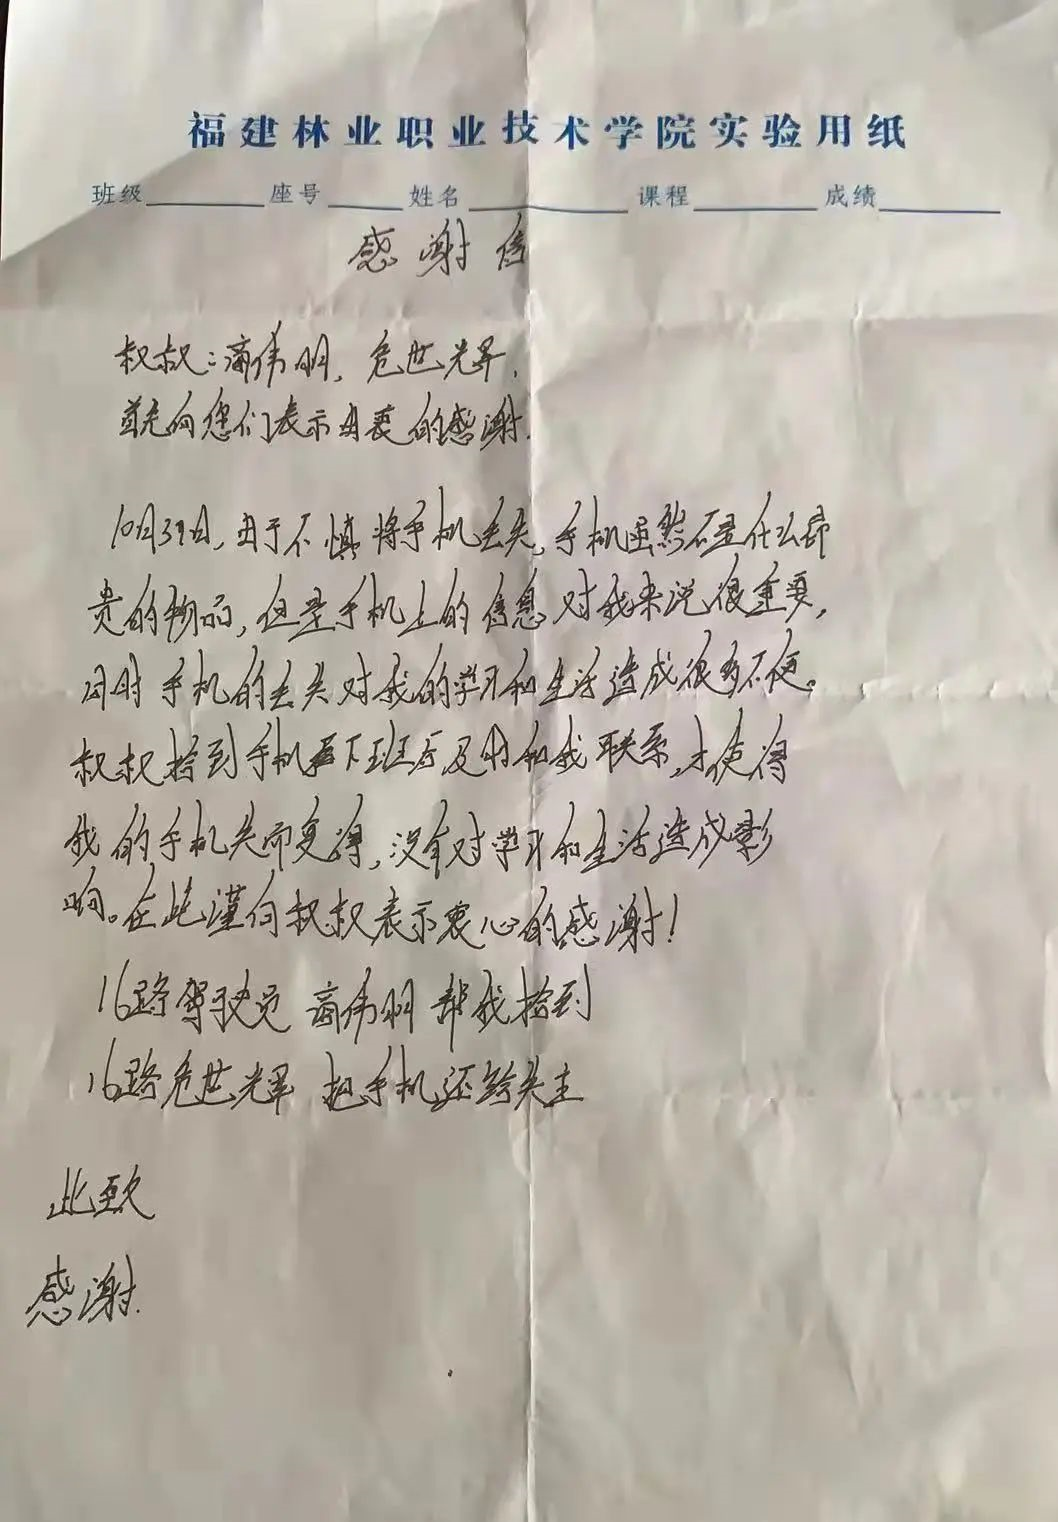 福建林业职业技术学院实验用纸
班级 座号 姓名 课程 成绩
感谢信
叔叔:伟明,危世光昇.
首先向您们表示由衷的感谢.
10月31日,由于不慎将手机丢失,手机虽然不是什么昂
贵的物品,但是手机上的信息对我来说很重要,
同时手机的丢失对我的学习和生活造成很多不便。
叔叔捡到手机再下班后及时和我联系,才使得
我的手机失而复得,没有对学习和生活造成影
响。在此谨向叔叔表示衷心的感谢!
16路驾驶员 伟明 帮我捡到
16路危世光昇 把手机还给失主
此致
感谢.